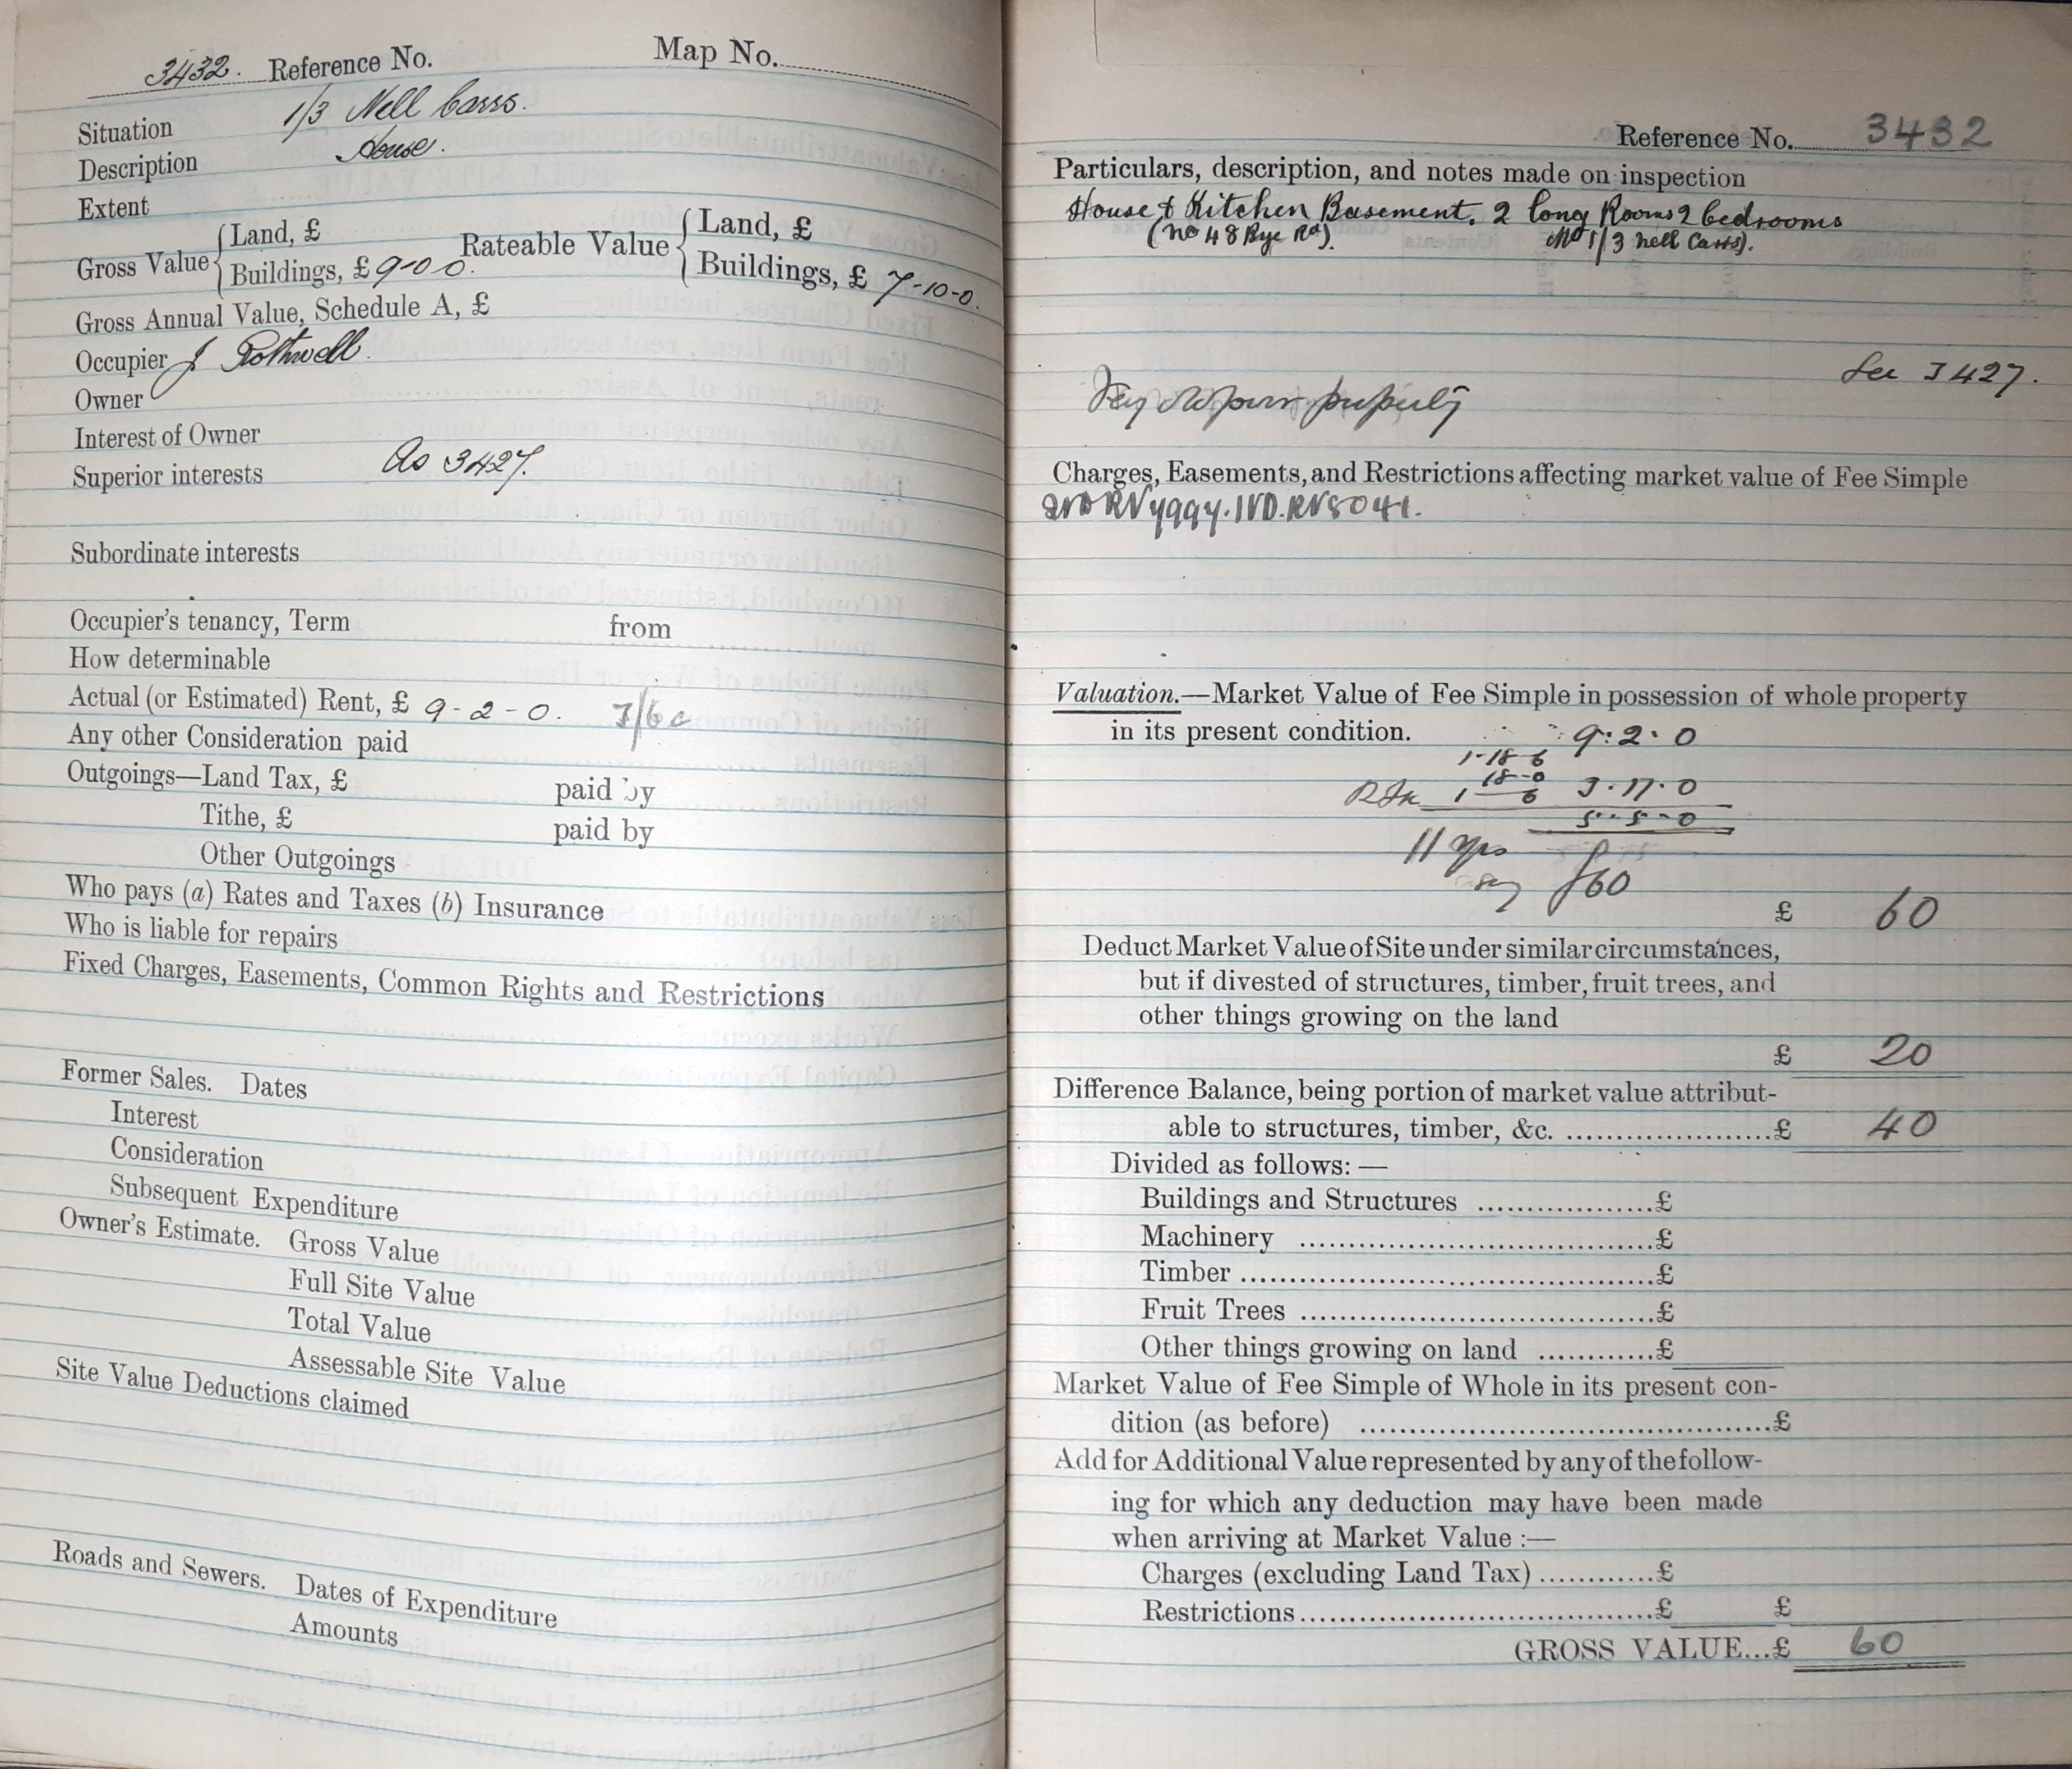 3432. Reference No. Map No.
Situation 1/3 Nell Carrs.
Description House.
Extent
Gross Value { Land, £ Rateable Value { Land, £
Buildings, £ 9-0-0. Buildings, £ 7-10-0.
Gross Annual Value, Schedule A, £
Occupier J Rothwell.
Owner
Interest of Owner
Superior interests As 3427.
Subordinate interests
Occupier's tenancy, Term from
How determinable
Actual (or Estimated) Rent, £ 9-2-0. 3/6
Any other Consideration paid
Outgoings—Land Tax, £ paid by
Tithe, £ paid by
Other Outgoings
Who pays (a) Rates and Taxes (b) Insurance
Who is liable for repairs
Fixed Charges, Easements, Common Rights and Restrictions
Former Sales. Dates
Interest
Consideration
Subsequent Expenditure
Owner's Estimate. Gross Value
Full Site Value
Total Value
Assessable Site Value
Site Value Deductions claimed
Roads and Sewers. Dates of Expenditure
Amounts
Reference No. 3432
Particulars, description, and notes made on inspection
House & Kitchen Basement. 2 long Rooms 2 bedrooms
(No 48 Bye Rd). No 1/3 Nell Carrs).
See 3427.
Very old poor property
Charges, Easements, and Restrictions affecting market value of Fee Simple
Valuation.—Market Value of Fee Simple in possession of whole property
in its present condition. 9.2.0
1-18-6
18-0
1 6 3.17.0
5-5-0
11 yrs
say £60
£ 60
Deduct Market Value of Site under similar circumstances,
but if divested of structures, timber, fruit trees, and
other things growing on the land
£ 20
Difference Balance, being portion of market value attribut-
able to structures, timber, &c. ....................£ 40
Divided as follows:—
Buildings and Structures ..................£
Machinery ....................................£
Timber ..........................................£
Fruit Trees ....................................£
Other things growing on land ............£
Market Value of Fee Simple of Whole in its present con-
dition (as before) ..........................................£
Add for Additional Value represented by any of the follow-
ing for which any deduction may have been made
when arriving at Market Value :—
Charges (excluding Land Tax) ............£
Restrictions....................................£ £
GROSS VALUE...£ 60